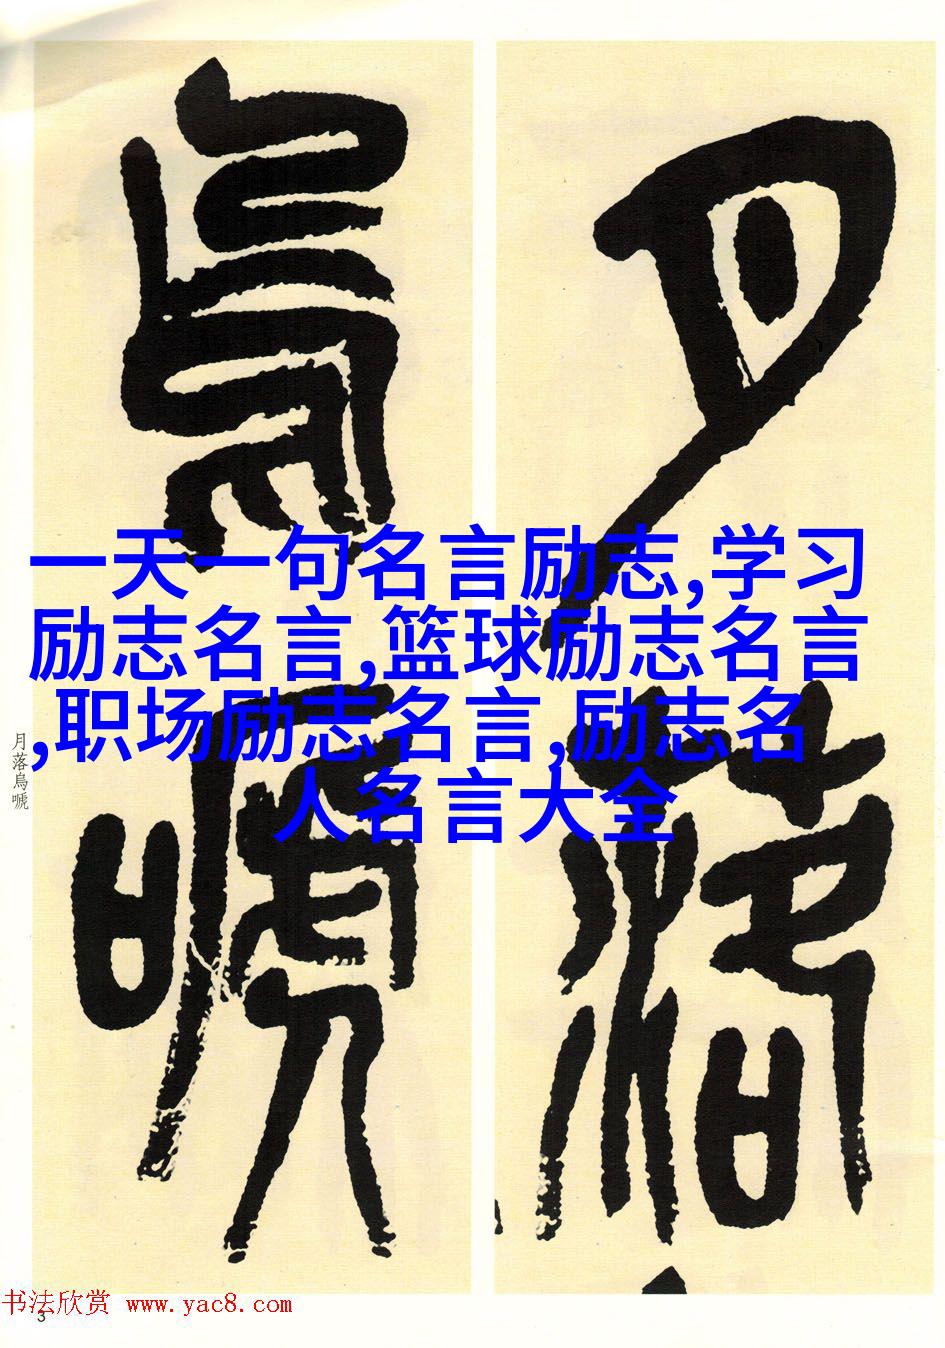 月落
烏嗁
一天一句名言励志,学习
励志名言,篮球励志名言
,职场励志名言,励志名
人名言大全
月落烏嗁
书法欣赏 www.yac8.com
3